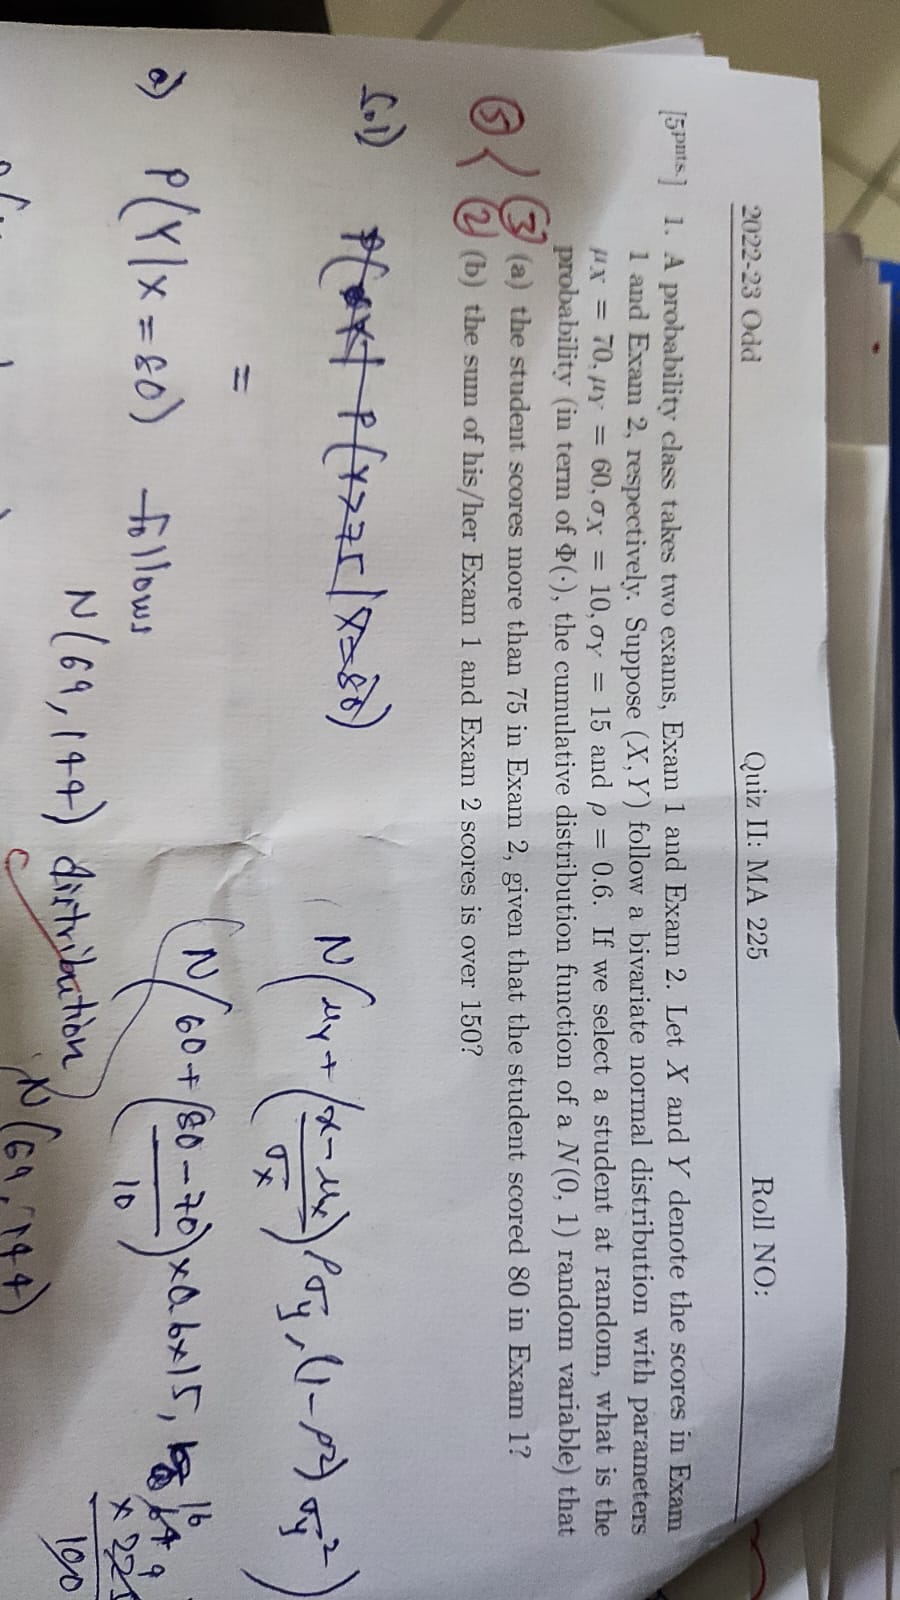 2022-23 Odd Quiz II: MA 225 Roll NO:
[5pnts.] 1. A probability class takes two exams, Exam 1 and Exam 2. Let X and Y denote the scores in Exam
1 and Exam 2, respectively. Suppose (X, Y) follow a bivariate normal distribution with parameters
μX = 70, μY = 60, σX = 10, σY = 15 and ρ = 0.6. If we select a student at random, what is the
probability (in term of Φ(·), the cumulative distribution function of a N(0, 1) random variable) that
③ (a) the student scores more than 75 in Exam 2, given that the student scored 80 in Exam 1?
⑤ ② (b) the sum of his/her Exam 1 and Exam 2 scores is over 150?
Sol) P(Y>75|X=80)
N(μy + (x-μx/σx) ρσy, (1-ρ²) σy²)
=
(N(60+(80-70/10)×0.6×15, 16
a) P(Y|X=80) follows
N(69,144) distribution
N(69,144)